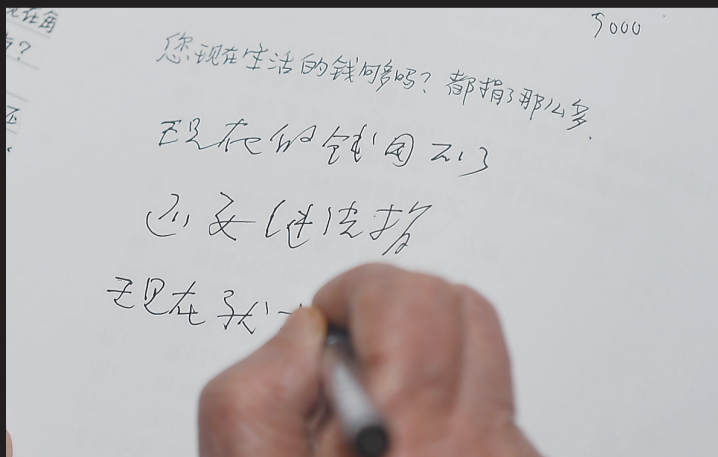 5000
在角
?
还
您现在生活的钱够多吗?都捐了那么多.
现在的钱用不了
还要继续捐
现在我